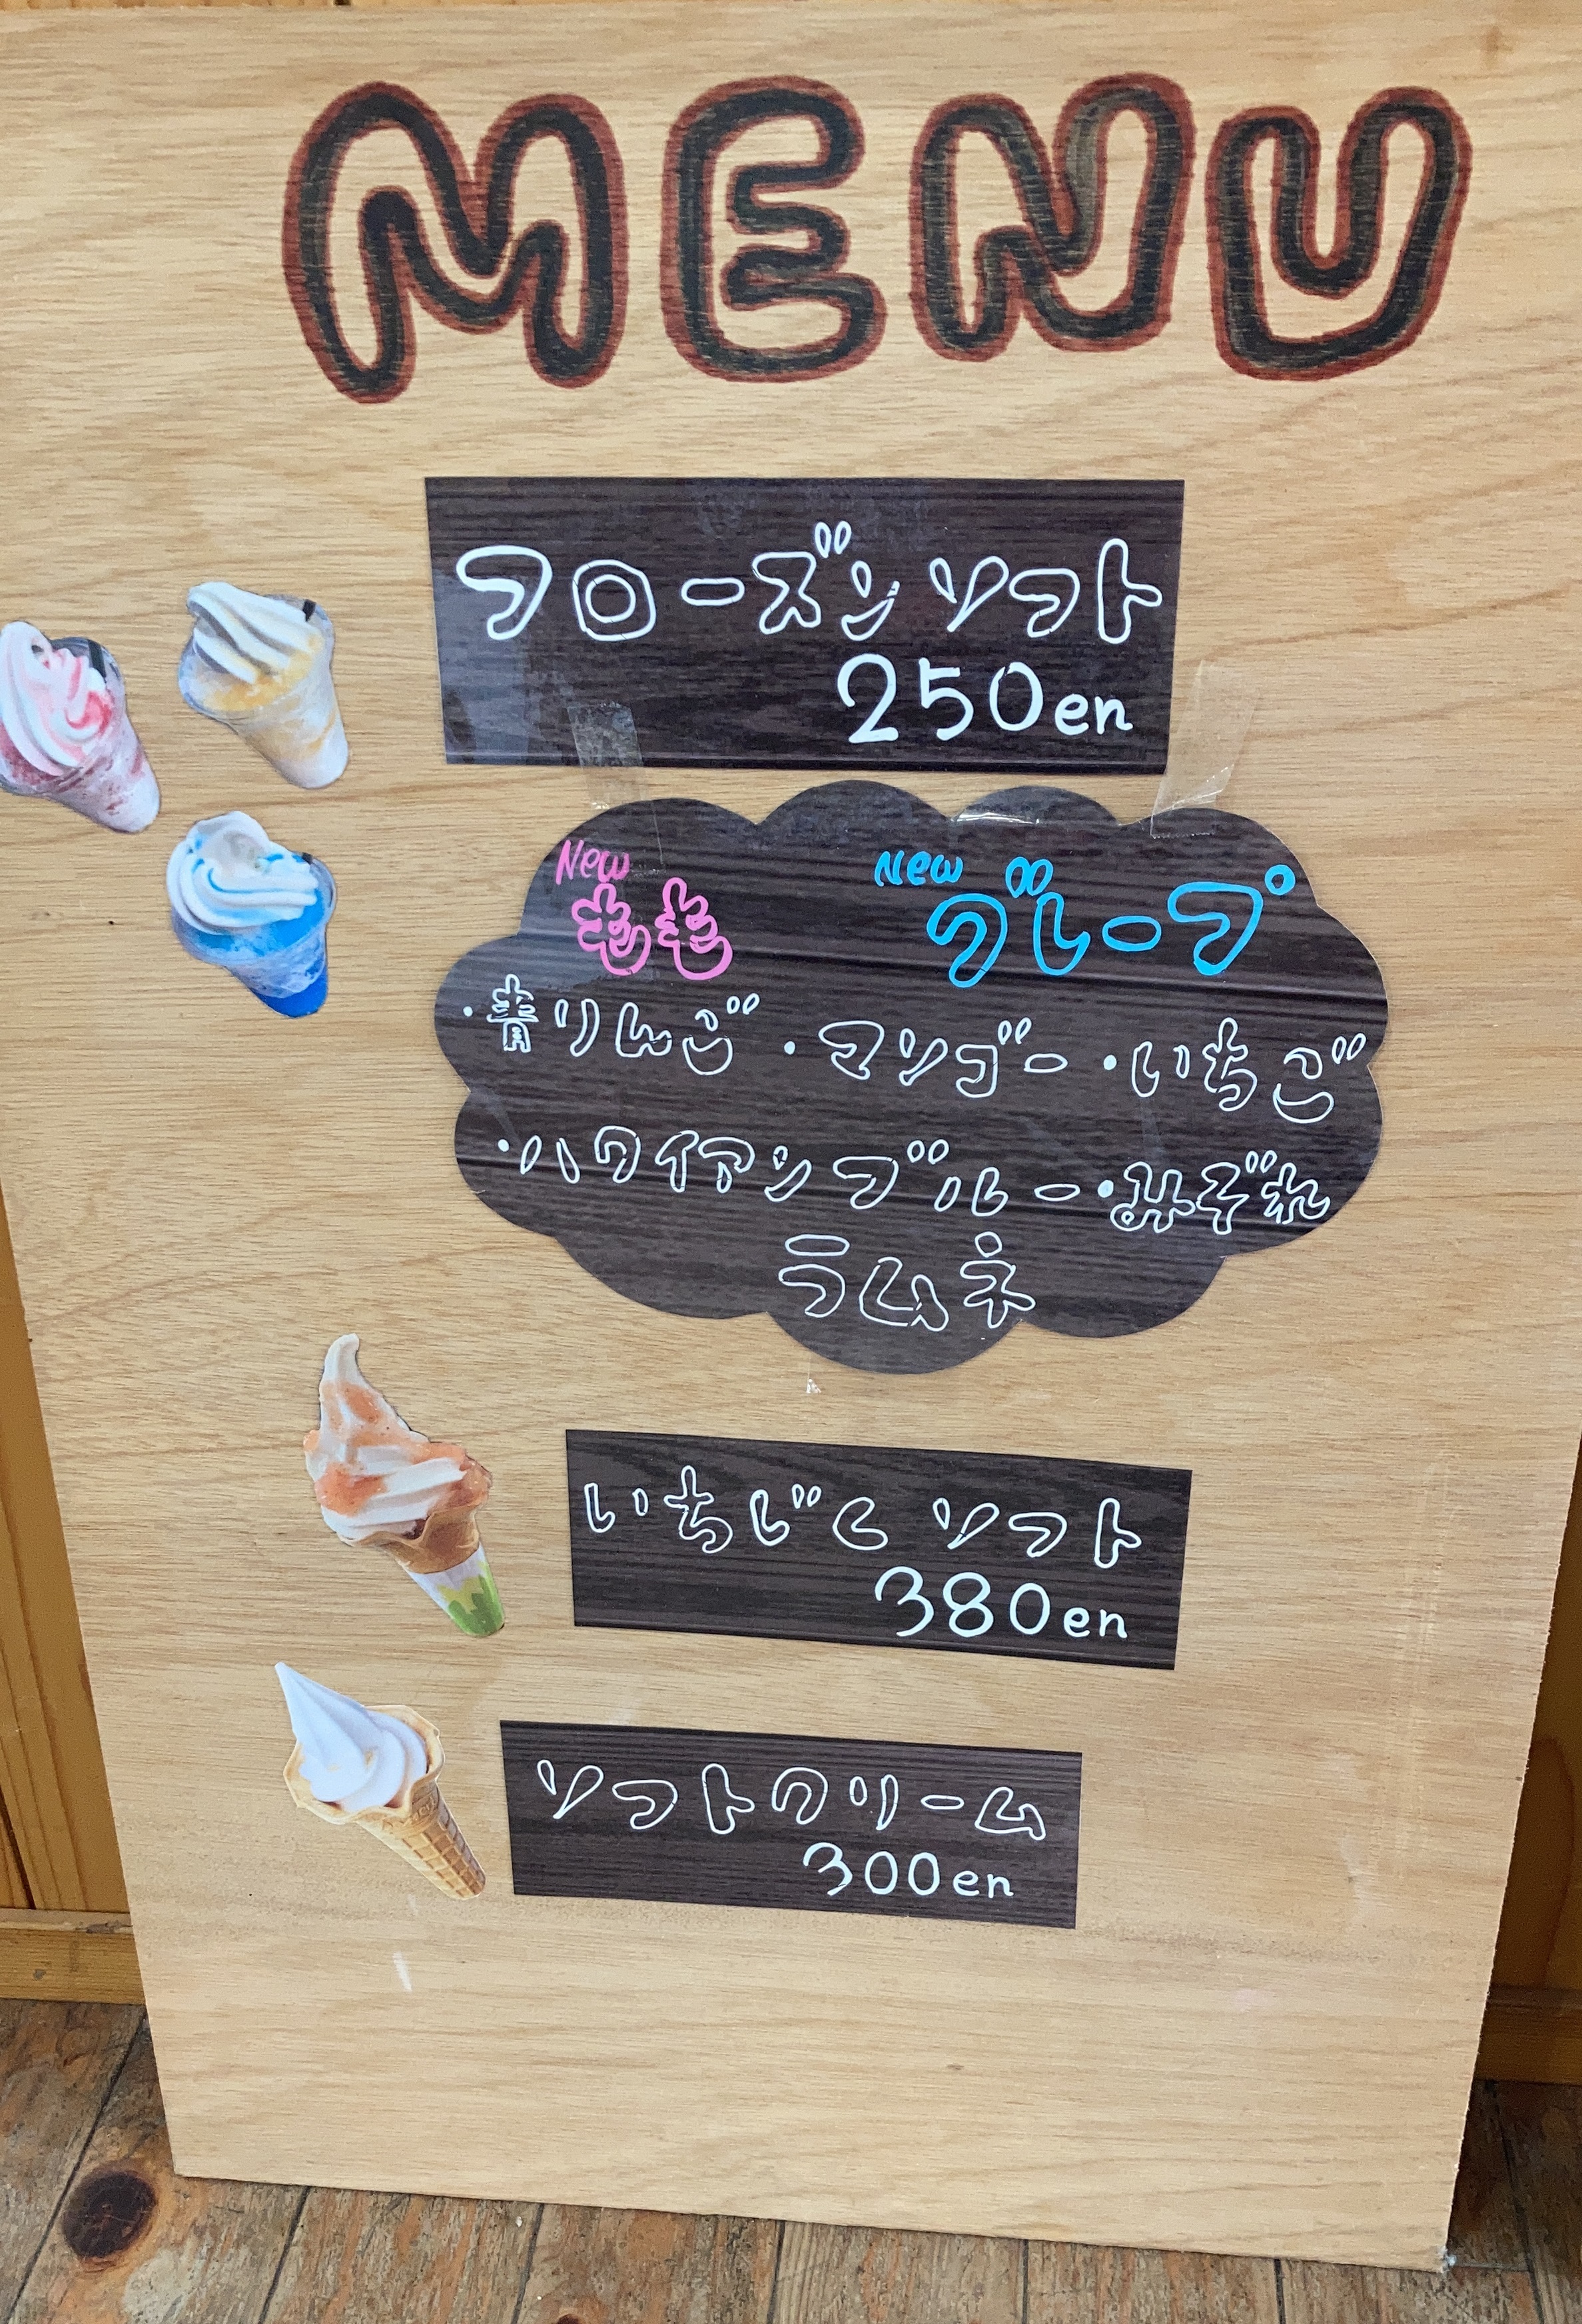 MENU
フローズンソフト
250en
New New
もも グレープ
・青りんご ・マンゴー ・いちご
・ハワイアンブルー ・みぞれ
ラムネ
いちじくソフト
380en
ソフトクリーム
300en